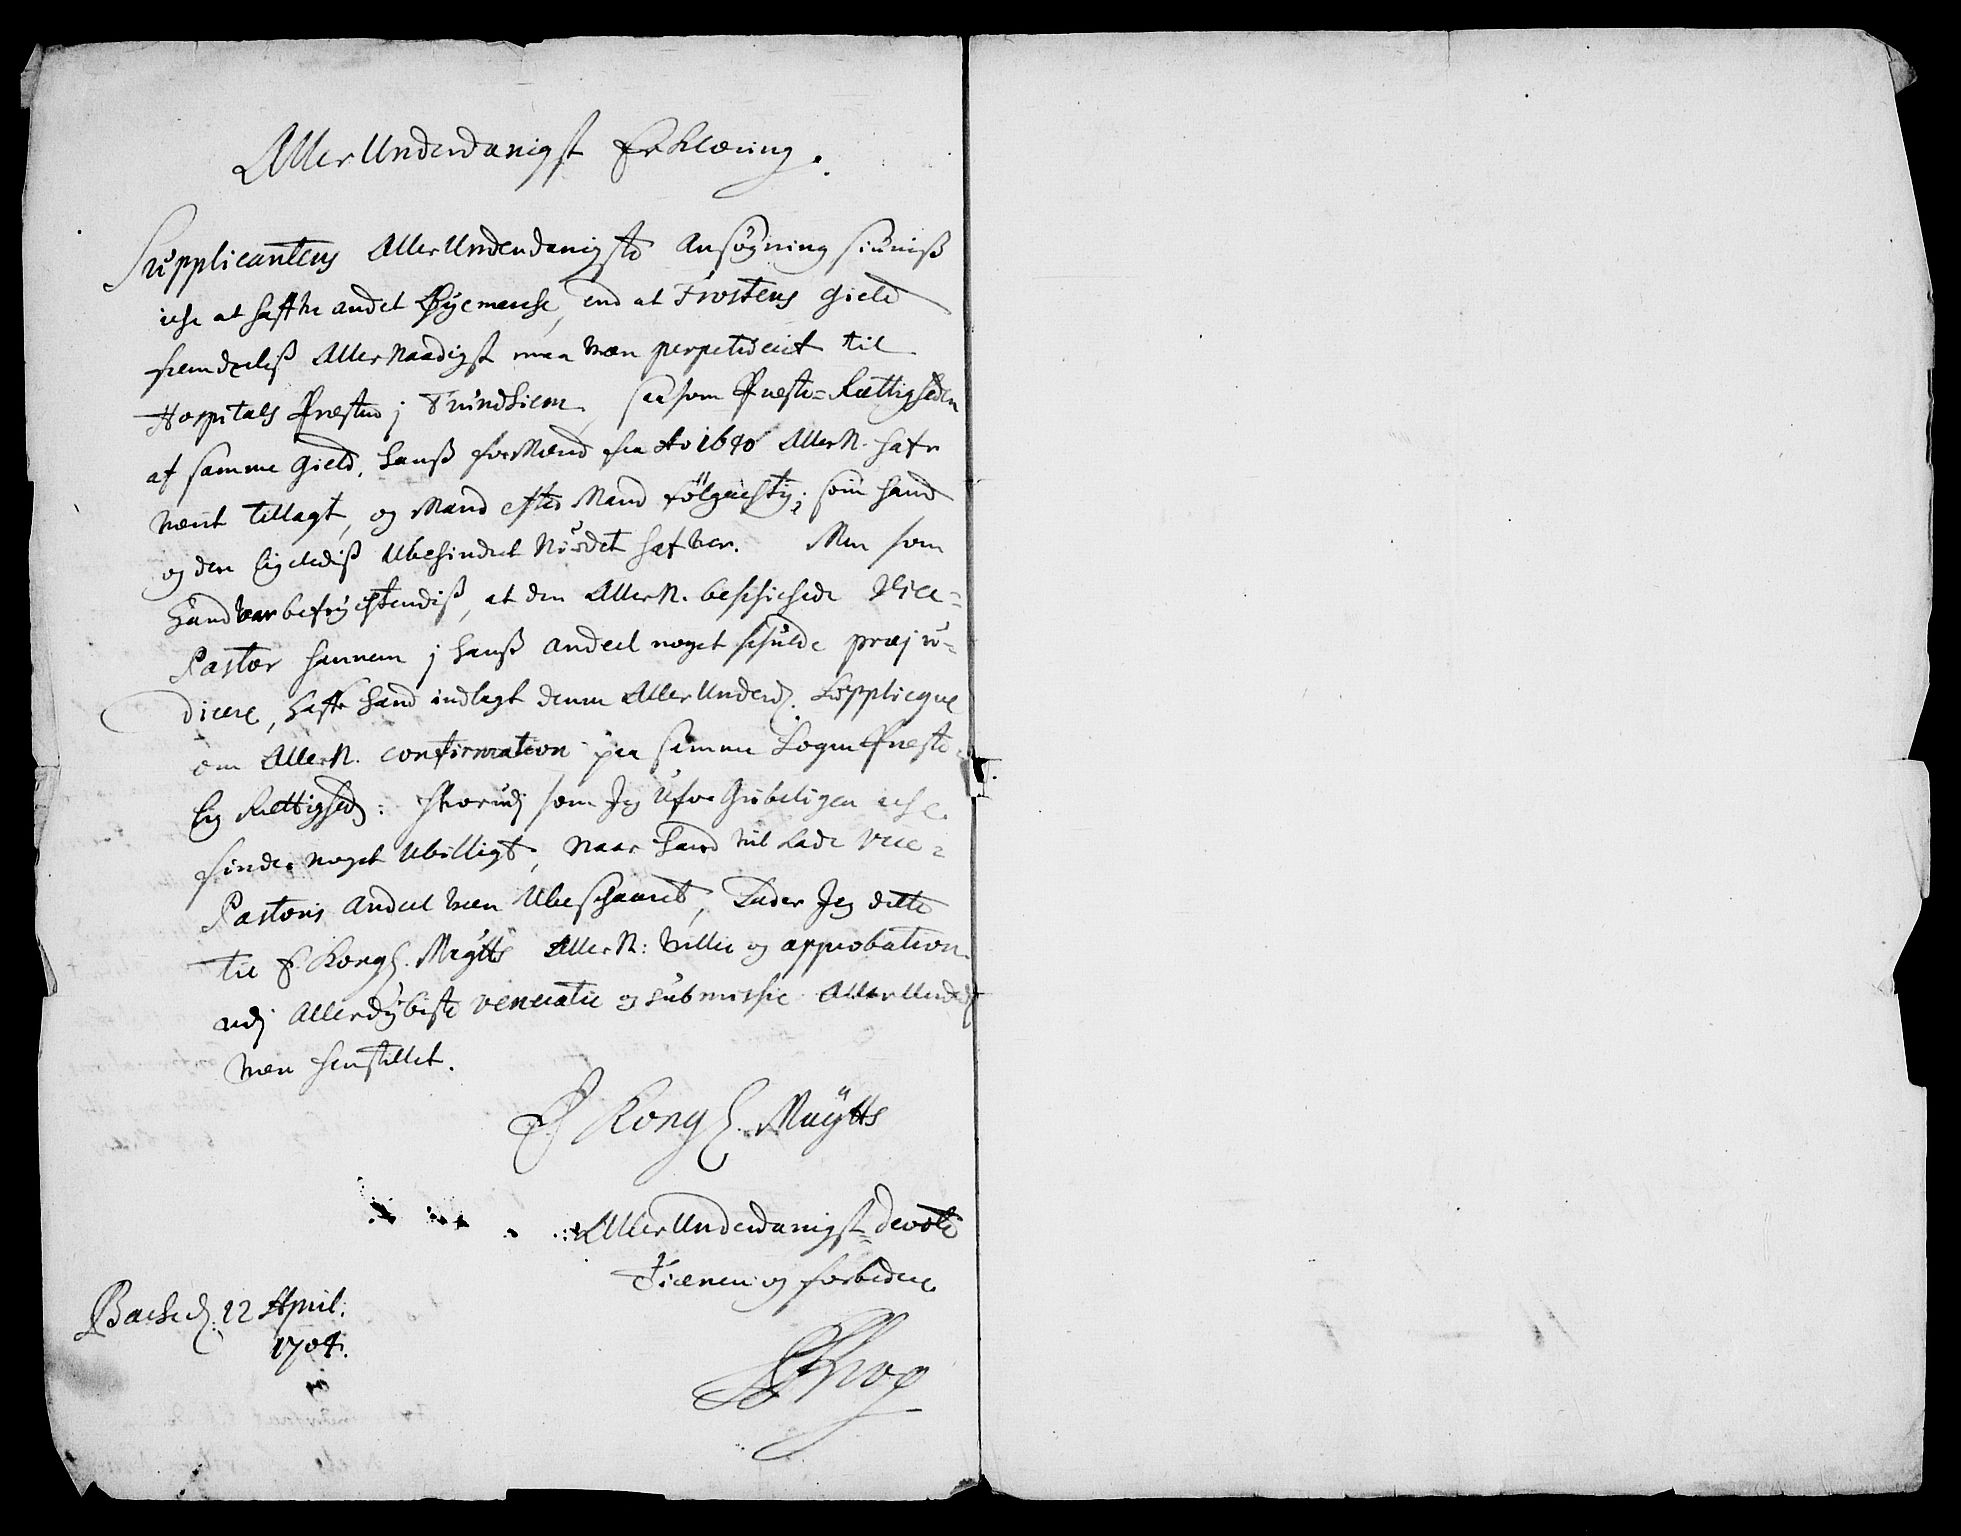 Aller Underdanigst Erklæring.
Supplicantens Aller Underdanigste Ansøgning siuniß
iche at haffhe andet Øyemerche, end at Frostens Gield
fremdeeliß Aller Naadigst maa være perpetueret til
Hospitals Præsten j Trundhiem, saasom Præste-Rættigheden
af samme Gield, hanß forMænd fra Ao 1690 Aller N. hafr
været tillagt, og Mand efter Mand følgachtig; som hand
og den ligelediß Ubehindret Nÿdet hafver. Men som
hand var befrychtendiß, at den Aller N. beschichede Vice-
Pastor hannem j hanß andeel noget schulde præju-
dicere, haffr hand indlagt denne Aller Underd. Supplicqve
om Aller N. confirmation paa samme Sogne Præste-
lig Rettighed: Hvorudj som Jeg Uforgribeligen iche
finder noget Ubilligt, Naar hand vil Lade Vice-
Pastoris Andeel være Ubeschaaret, Lader Jeg dette
til E. Kongl. Maÿtts Aller N: Villie og approbation
udj Allerdÿbiste veneratie og submissie Aller Underd.
være henstillet.
E Kongl. Maÿtts
Aller Underdanigst-devote
Tienere og forbedere
Bache d. 12 April.
1704.